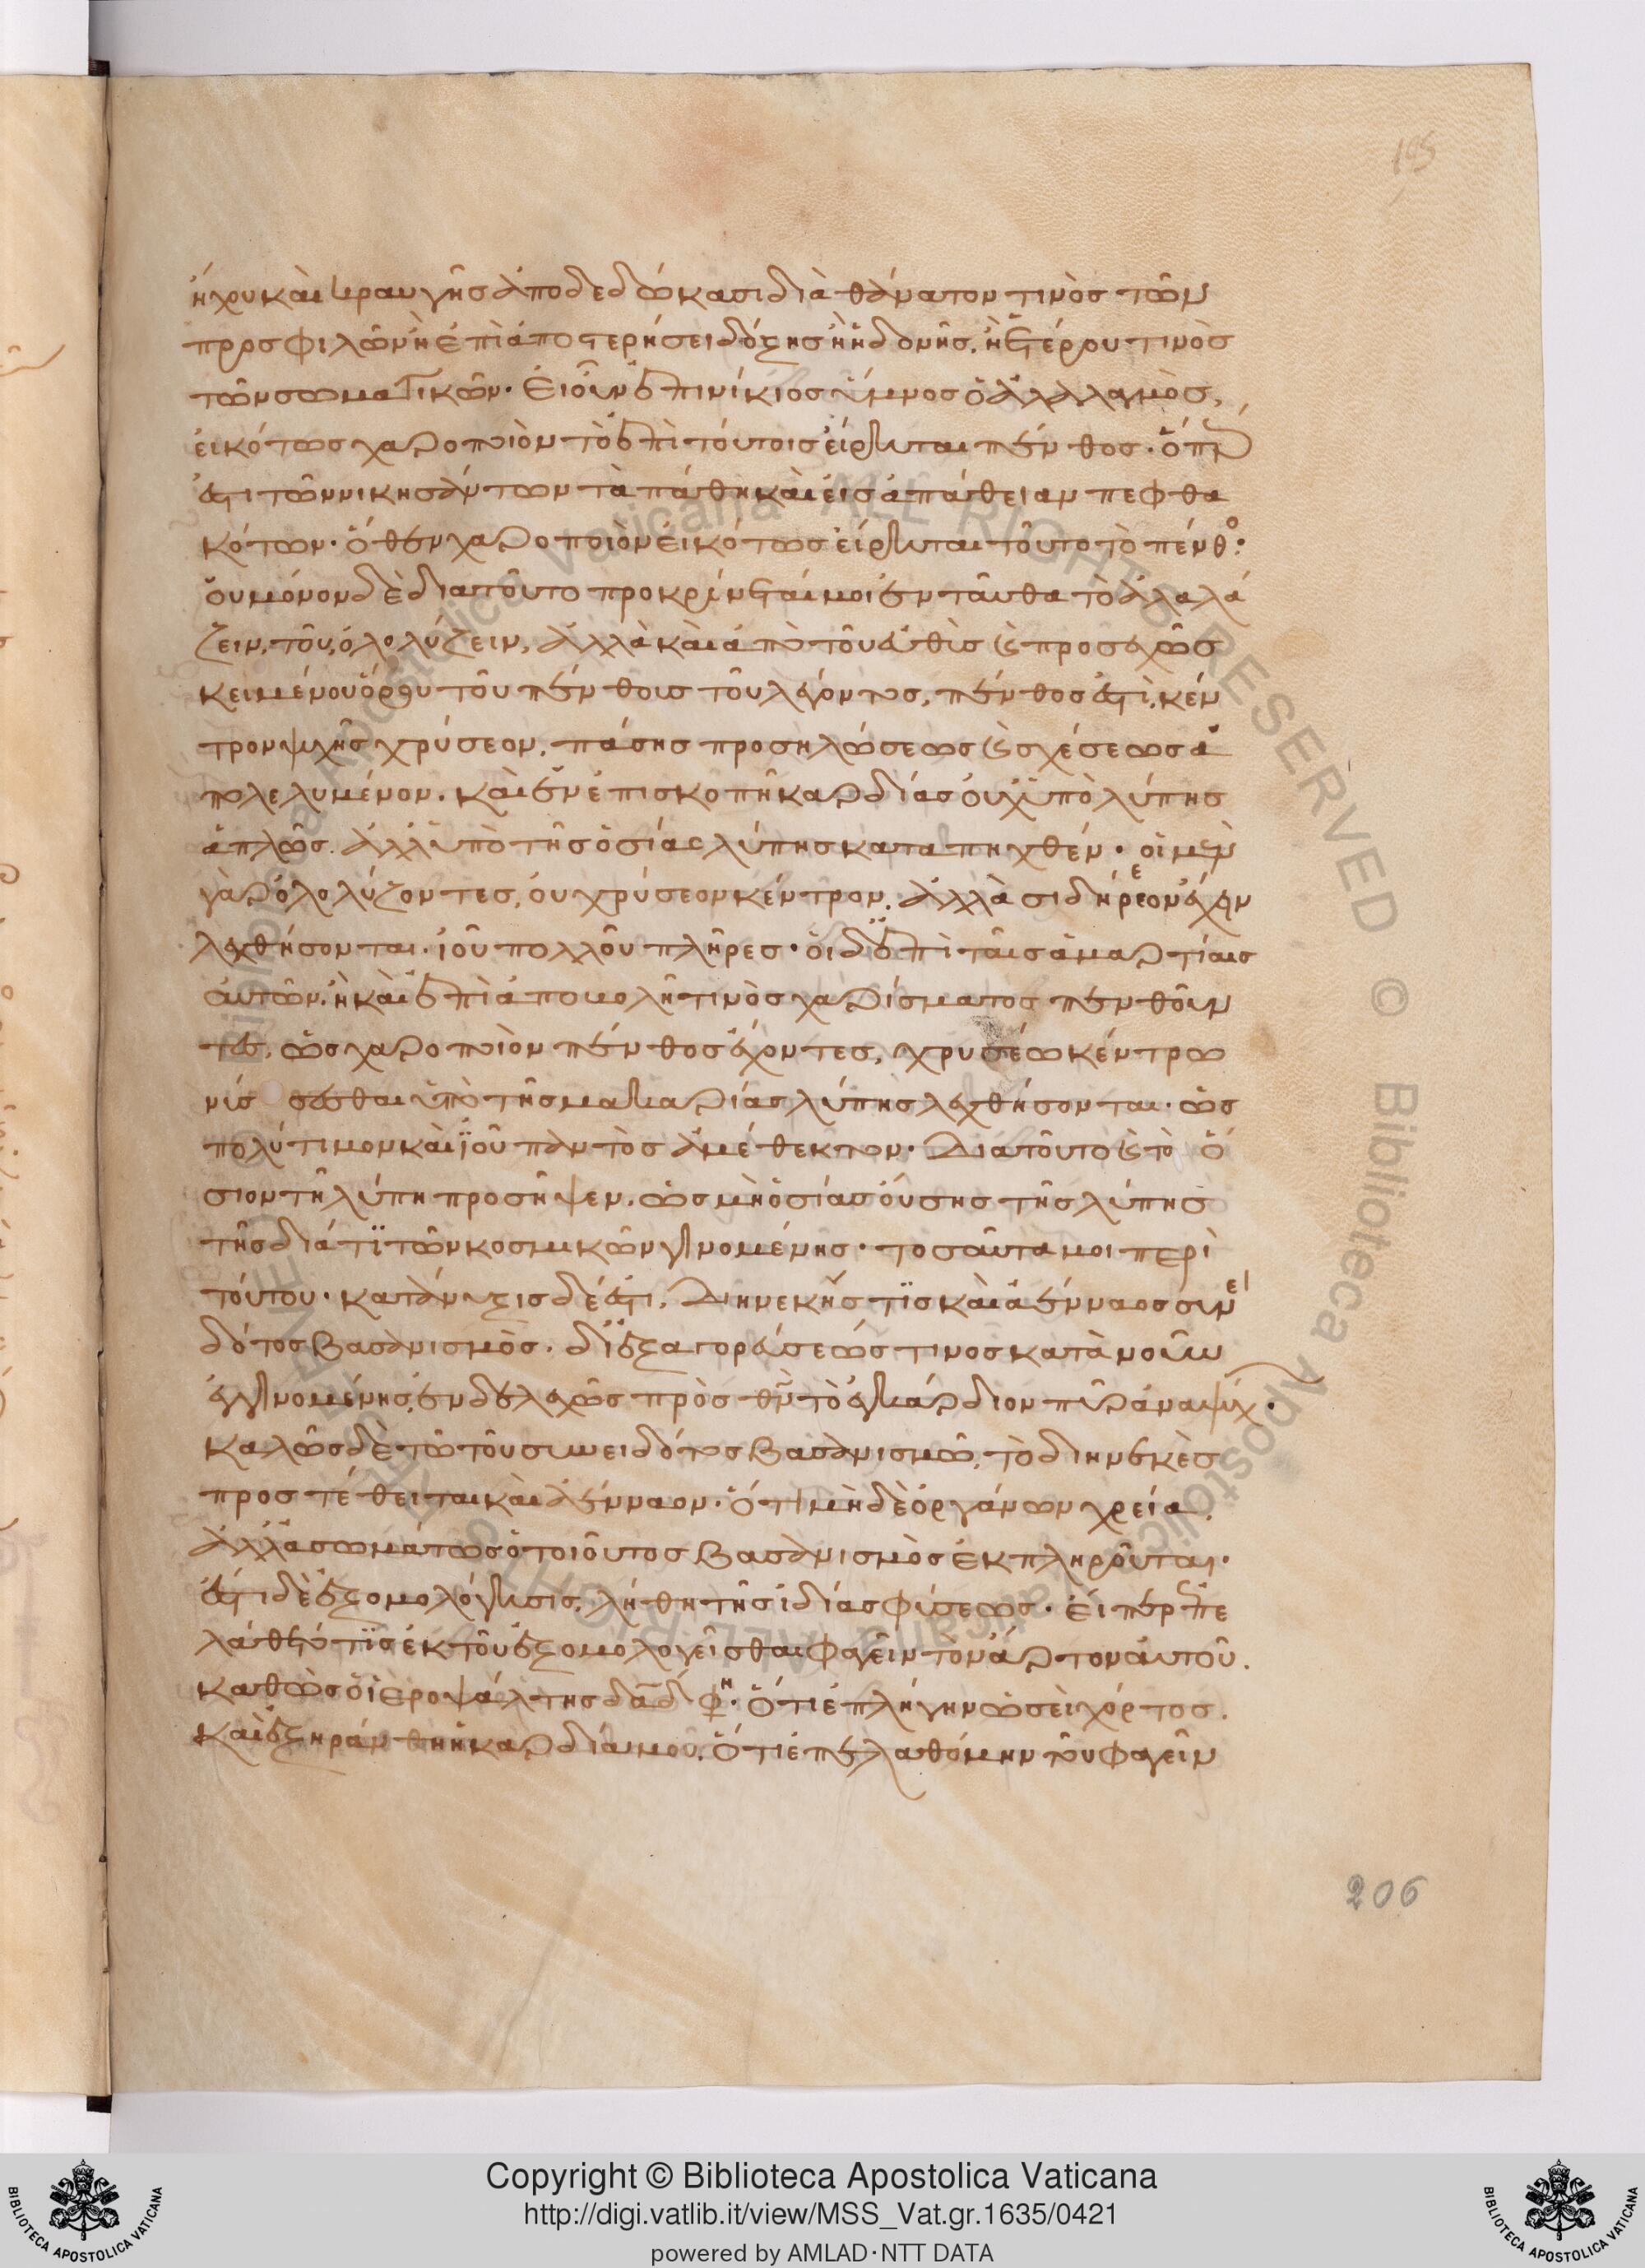 195
ἤχου καὶ κραυγῆς ἀποδεδώκασι διὰ θάνατον τινὸς τῶν
προσφιλῶν ἢ ἐπὶ ἀποστερήσει δόξης ἢ ἡδονῆς, ἢ ἑτέρου τινὸς
τῶν σωματικῶν· εἰ οὖν ἐπινίκιος ὕμνος ὁ ἀλαλαγμὸς,
εἰκότως χαροποιὸν τὸ ἐπὶ τούτοις εἴρηται πένθος· ὅπερ
ἐστι τῶν νικησάντων τὰ πάθη καὶ εἰς ἀπάθειαν πεφθα
κότων· ὅθεν χαροποιὸν εἰκότως εἴρηται τοῦτο τὸ πένθος·
οὐ μόνον δὲ διατοῦτο προκρίνεταί μοι ἐνταῦθα τὸ ἀλαλά
ζειν, τοῦ ὀλολύζειν, ἀλλὰ καὶ ἀπὸ τοῦ εὐθὺς καὶ προσεχῶς
κειμένου ὅρου τοῦ πένθους τοῦ λέγοντος, πένθος ἐστὶ, κέν
τρον ψυχῆς χρύσεον, πάσης προσηλώσεως καὶ σχέσεως ἀ
πολελυμένον. καὶ ἐν ἐπισκοπῇ καρδίας οὐχ ὑπὸ λύπης
ἁπλῶς. ἀλλ' ὑπὸ τῆς ὁσίας λύπης καταπηχθέν· οἱ μὲν
γὰρ ὀλολύζοντες, οὐ χρύσεον κέντρον, ἀλλὰ σιδήρεον ἔχειν
λεχθήσονται. ἰοῦ πολλοῦ πλῆρες· οἱ δ' ἐπὶ ταῖς ἁμαρτίαις
αὐτῶν, ἢ καὶ ἐπὶ ἀποβολῇ τινὸς χαρίσματος πενθοῦν
τες, ὡς χαροποιὸν πένθος ἔχοντες, χρυσέω κέντρω
νύσσεσθαι ὑπὸ τῆς μακαρίας λύπης λεχθήσονται. ὡς
πολύτιμον καὶ ἰοῦ παντὸς ἀμέθεκτον· Διατοῦτο καὶ τὸ ὅ
σιον τῇ λύπῃ προσῆψεν. ὡς μὴ ὁσίας οὔσης τῆς λύπης
τῆς διά τι τῶν κοσμικῶν γινομένης· τοσαῦτα μοι περὶ
τούτου· κατάνυξις δέ ἐστι, Διηνεκής τις καὶ ἀένναος συνει
δότος βασανισμὸς. δι' ἐξαγορεύσεώς τινος κατὰ νοῦν
ἐγγινομένης, ἐνδελεχῶς πρὸς θν τὸ ἐγκάρδιον πῦρ ἀναψύχ·
Καλῶς δὲ τῶ τοῦ συνειδότος βασανισμῶ, τὸ διηνεκὲς
προστέθειται καὶ ἀένναον· ὅτι μὴ δὲ ὀργάνων χρεία.
ἀλλ' ἀσωμάτως ὁ τοιοῦτος βασανισμὸς ἐκπληροῦται·
ἐστι δὲ ἐξομολόγησις, λήθη τῆς ἰδίας φύσεως· εἴπερ ἐπε
λάθετό τις ἐκ τοῦ ἐξομολογεῖσθαι φαγεῖν τὸν ἄρτον αὐτοῦ.
καθὼς ὁ ἱεροψάλτης δαδ φη· ὅτι ἐπλήγην ὡσεὶ χόρτος.
καὶ ἐξηράνθη ἡ καρδία μου, ὅτι ἐπελαθόμην τοῦ φαγεῖν
206
BIBLIOTECA APOSTOLICA VATICANA
Copyright © Biblioteca Apostolica Vaticana
http://digi.vatlib.it/view/MSS_Vat.gr.1635/0421
powered by AMLAD·NTT DATA
BIBLIOTECA APOSTOLICA VATICANA